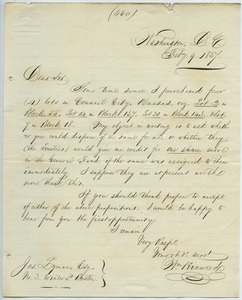 (460)
Washington, D. C.
Feb 9. 1857
Dear Sir
Some time since I purchased four
(4) lots in Council City, Kansas, viz; Lot 2 in
Block 55, Lot 14 in Block 137, Lot 10 in Block 143, & Lot
7 in Block 18. My object in writing is to ask whether
you could dispose of same for me, or whether they
(the Trustees) would give me credit for two shares
in the General Fund if the same was assigned to them
immediately. I suppose they are at present worth
more than this.
If you should think proper to accept
of either of the above propositions I would be happy to
hear from you the first opportunity.
I remain
Very Respt
Your obt servt
Wm
Jas. Esq